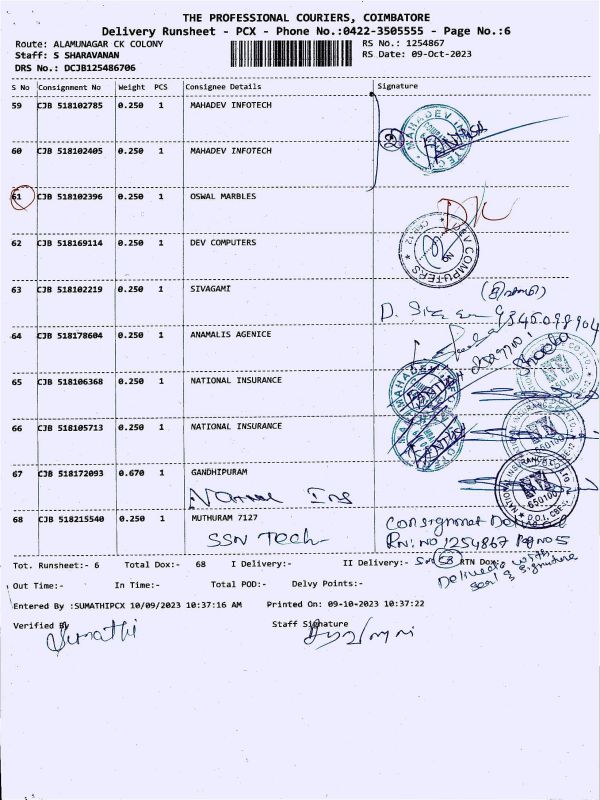 THE PROFESSIONAL COURIERS, COIMBATORE
Delivery Runsheet - PCX - Phone No.:0422-3505555 - Page No.:6
Route: ALAMUNAGAR CK COLONY RS No.: 1254867
Staff: S SHARAVANAN RS Date: 09-Oct-2023
DRS No.: DCJB125486706
S No Consignment No Weight PCS Consignee Details Signature
59 CJB 518102785 0.250 1 MAHADEV INFOTECH
60 CJB 518102405 0.250 1 MAHADEV INFOTECH
61 CJB 518102396 0.250 1 OSWAL MARBLES
62 CJB 518169114 0.250 1 DEV COMPUTERS
DEV COMPUTERS
63 CJB 518102219 0.250 1 SIVAGAMI
64 CJB 518178604 0.250 1 ANAMALIS AGENICE
65 CJB 518106368 0.250 1 NATIONAL INSURANCE
66 CJB 518105713 0.250 1 NATIONAL INSURANCE
67 CJB 518172093 0.670 1 GANDHIPURAM
68 CJB 518215540 0.250 1 MUTHURAM 7127
SSN Tech
RN: NO 1254867 Pg no 5
Tot. Runsheet:- 6 Total Dox:- 68 I Delivery:- II Delivery:- 68 RTN Dox:-
Delivered with
seal & signature
Out Time:- In Time:- Total POD:- Delvy Points:-
Entered By :SUMATHIPCX 10/09/2023 10:37:16 AM Printed On: 09-10-2023 10:37:22
Verified By Staff Signature
Sumathi